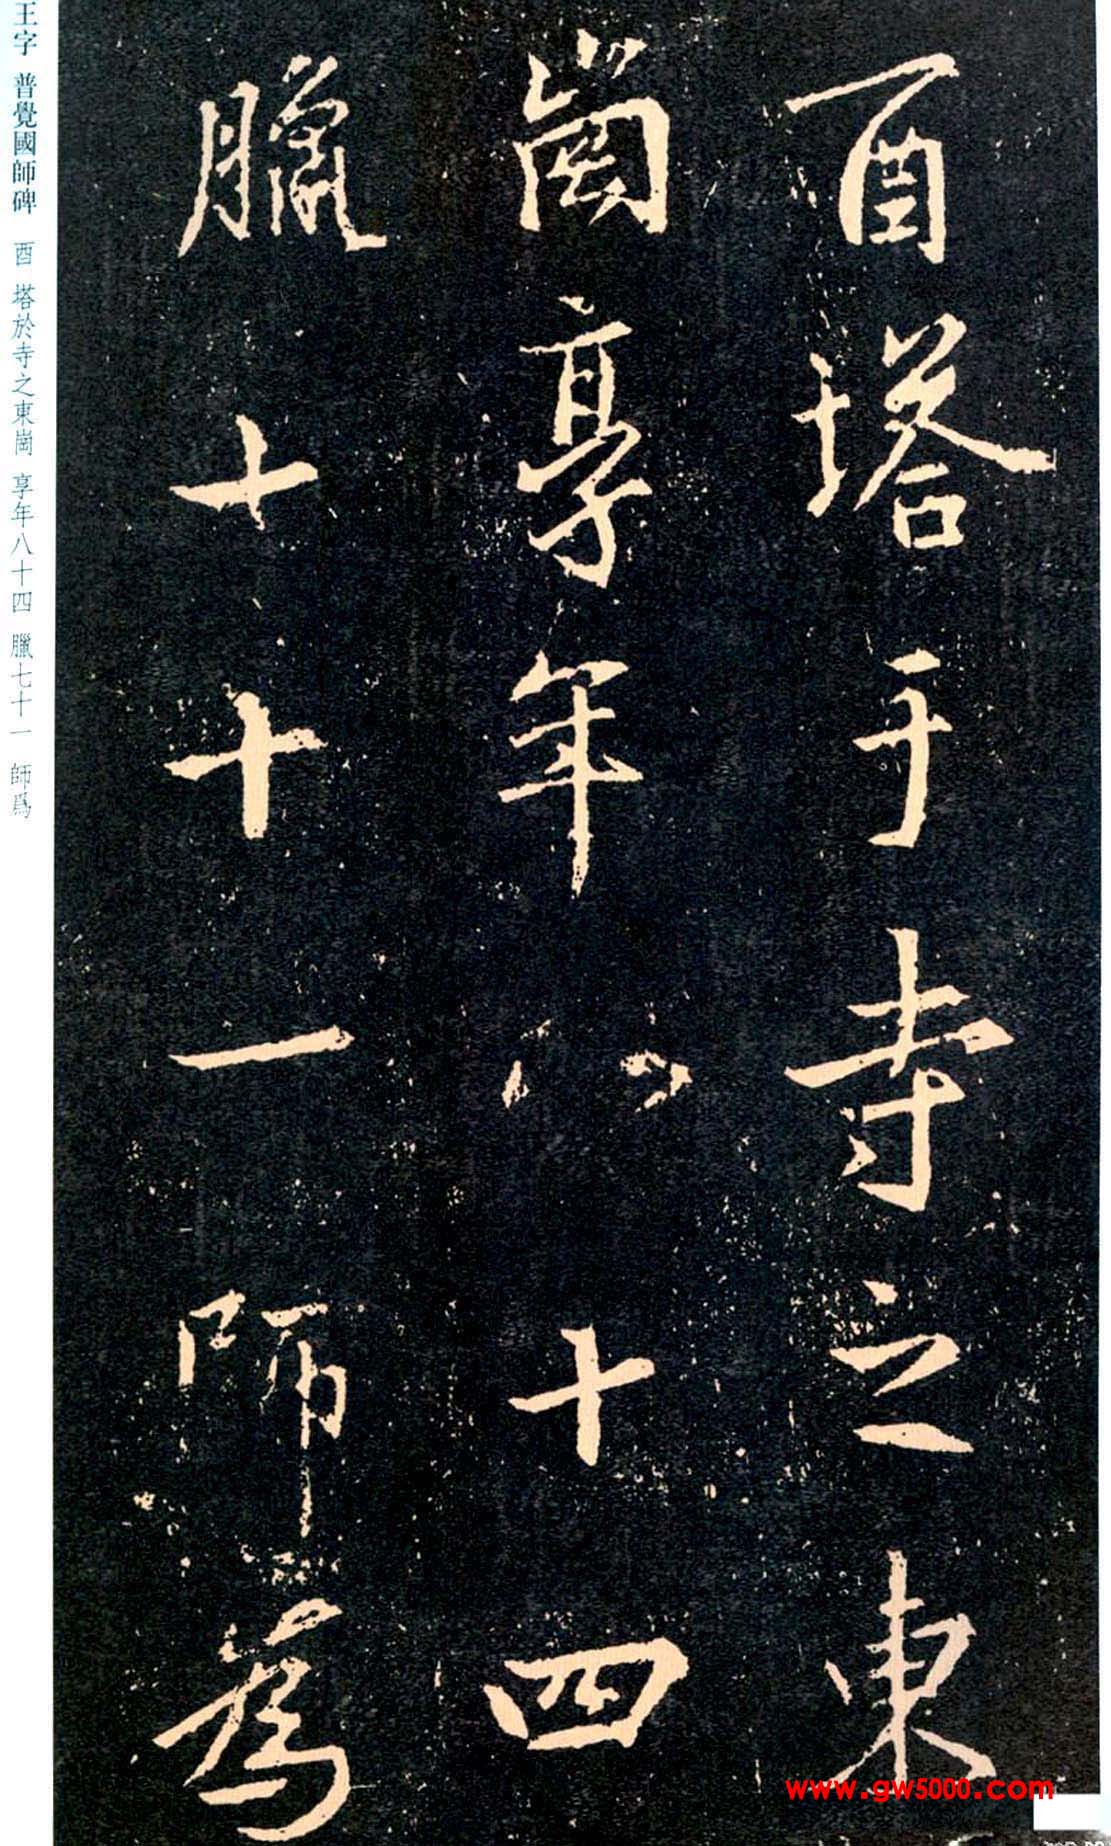 酉塔于寺之東
崗享年八十四
臘十十一師為
王字 普覺國師碑 酉 塔於寺之東崗 享年八十四 臘七十一 師爲
www.gw5000.com